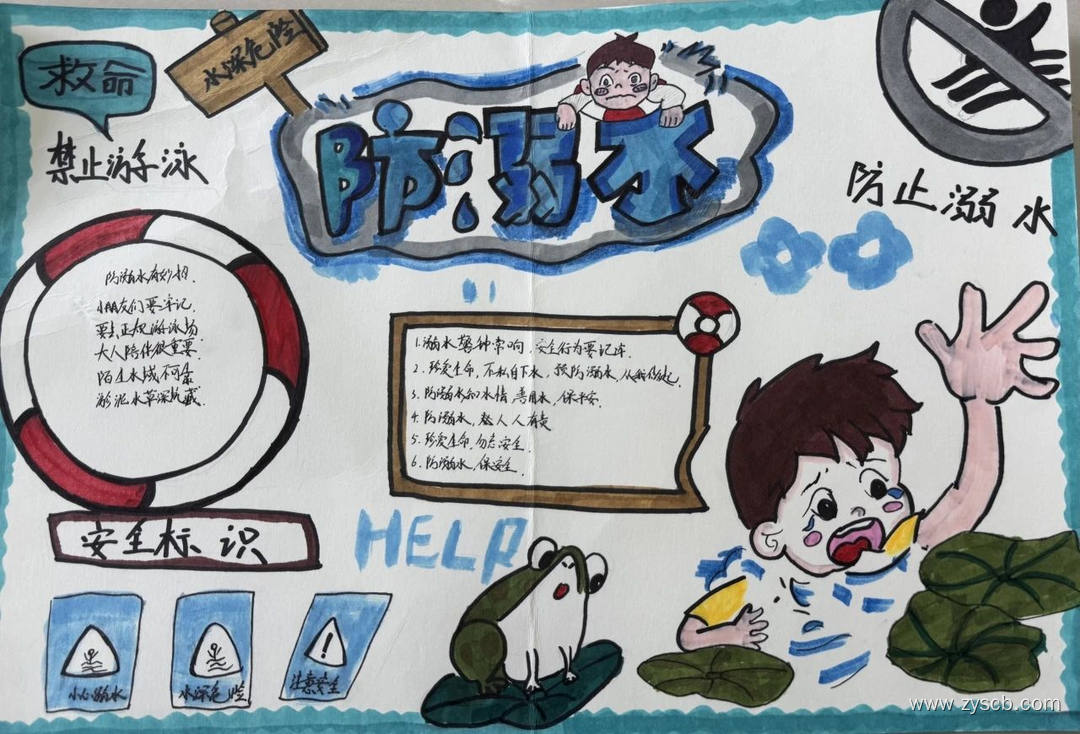 救命
水深危险
防溺水
禁止游泳
防止溺水
防溺水有妙招.
小朋友们要牢记.
要去正规游泳场
大人陪伴很重要.
陌生水域不可去
淤泥水草深坑藏.
1.溺水警钟常响,安全行为要记牢.
2.珍爱生命,不私自下水,预防溺水,从我做起.
3.防溺水知水情,善用水,保平安.
4.防溺水,人人有责
5.珍爱生命,勿忘安全.
6.防溺水,保安全.
安全标识
HELP
小心溺水
水深危险
注意安全
www.zyscb.com